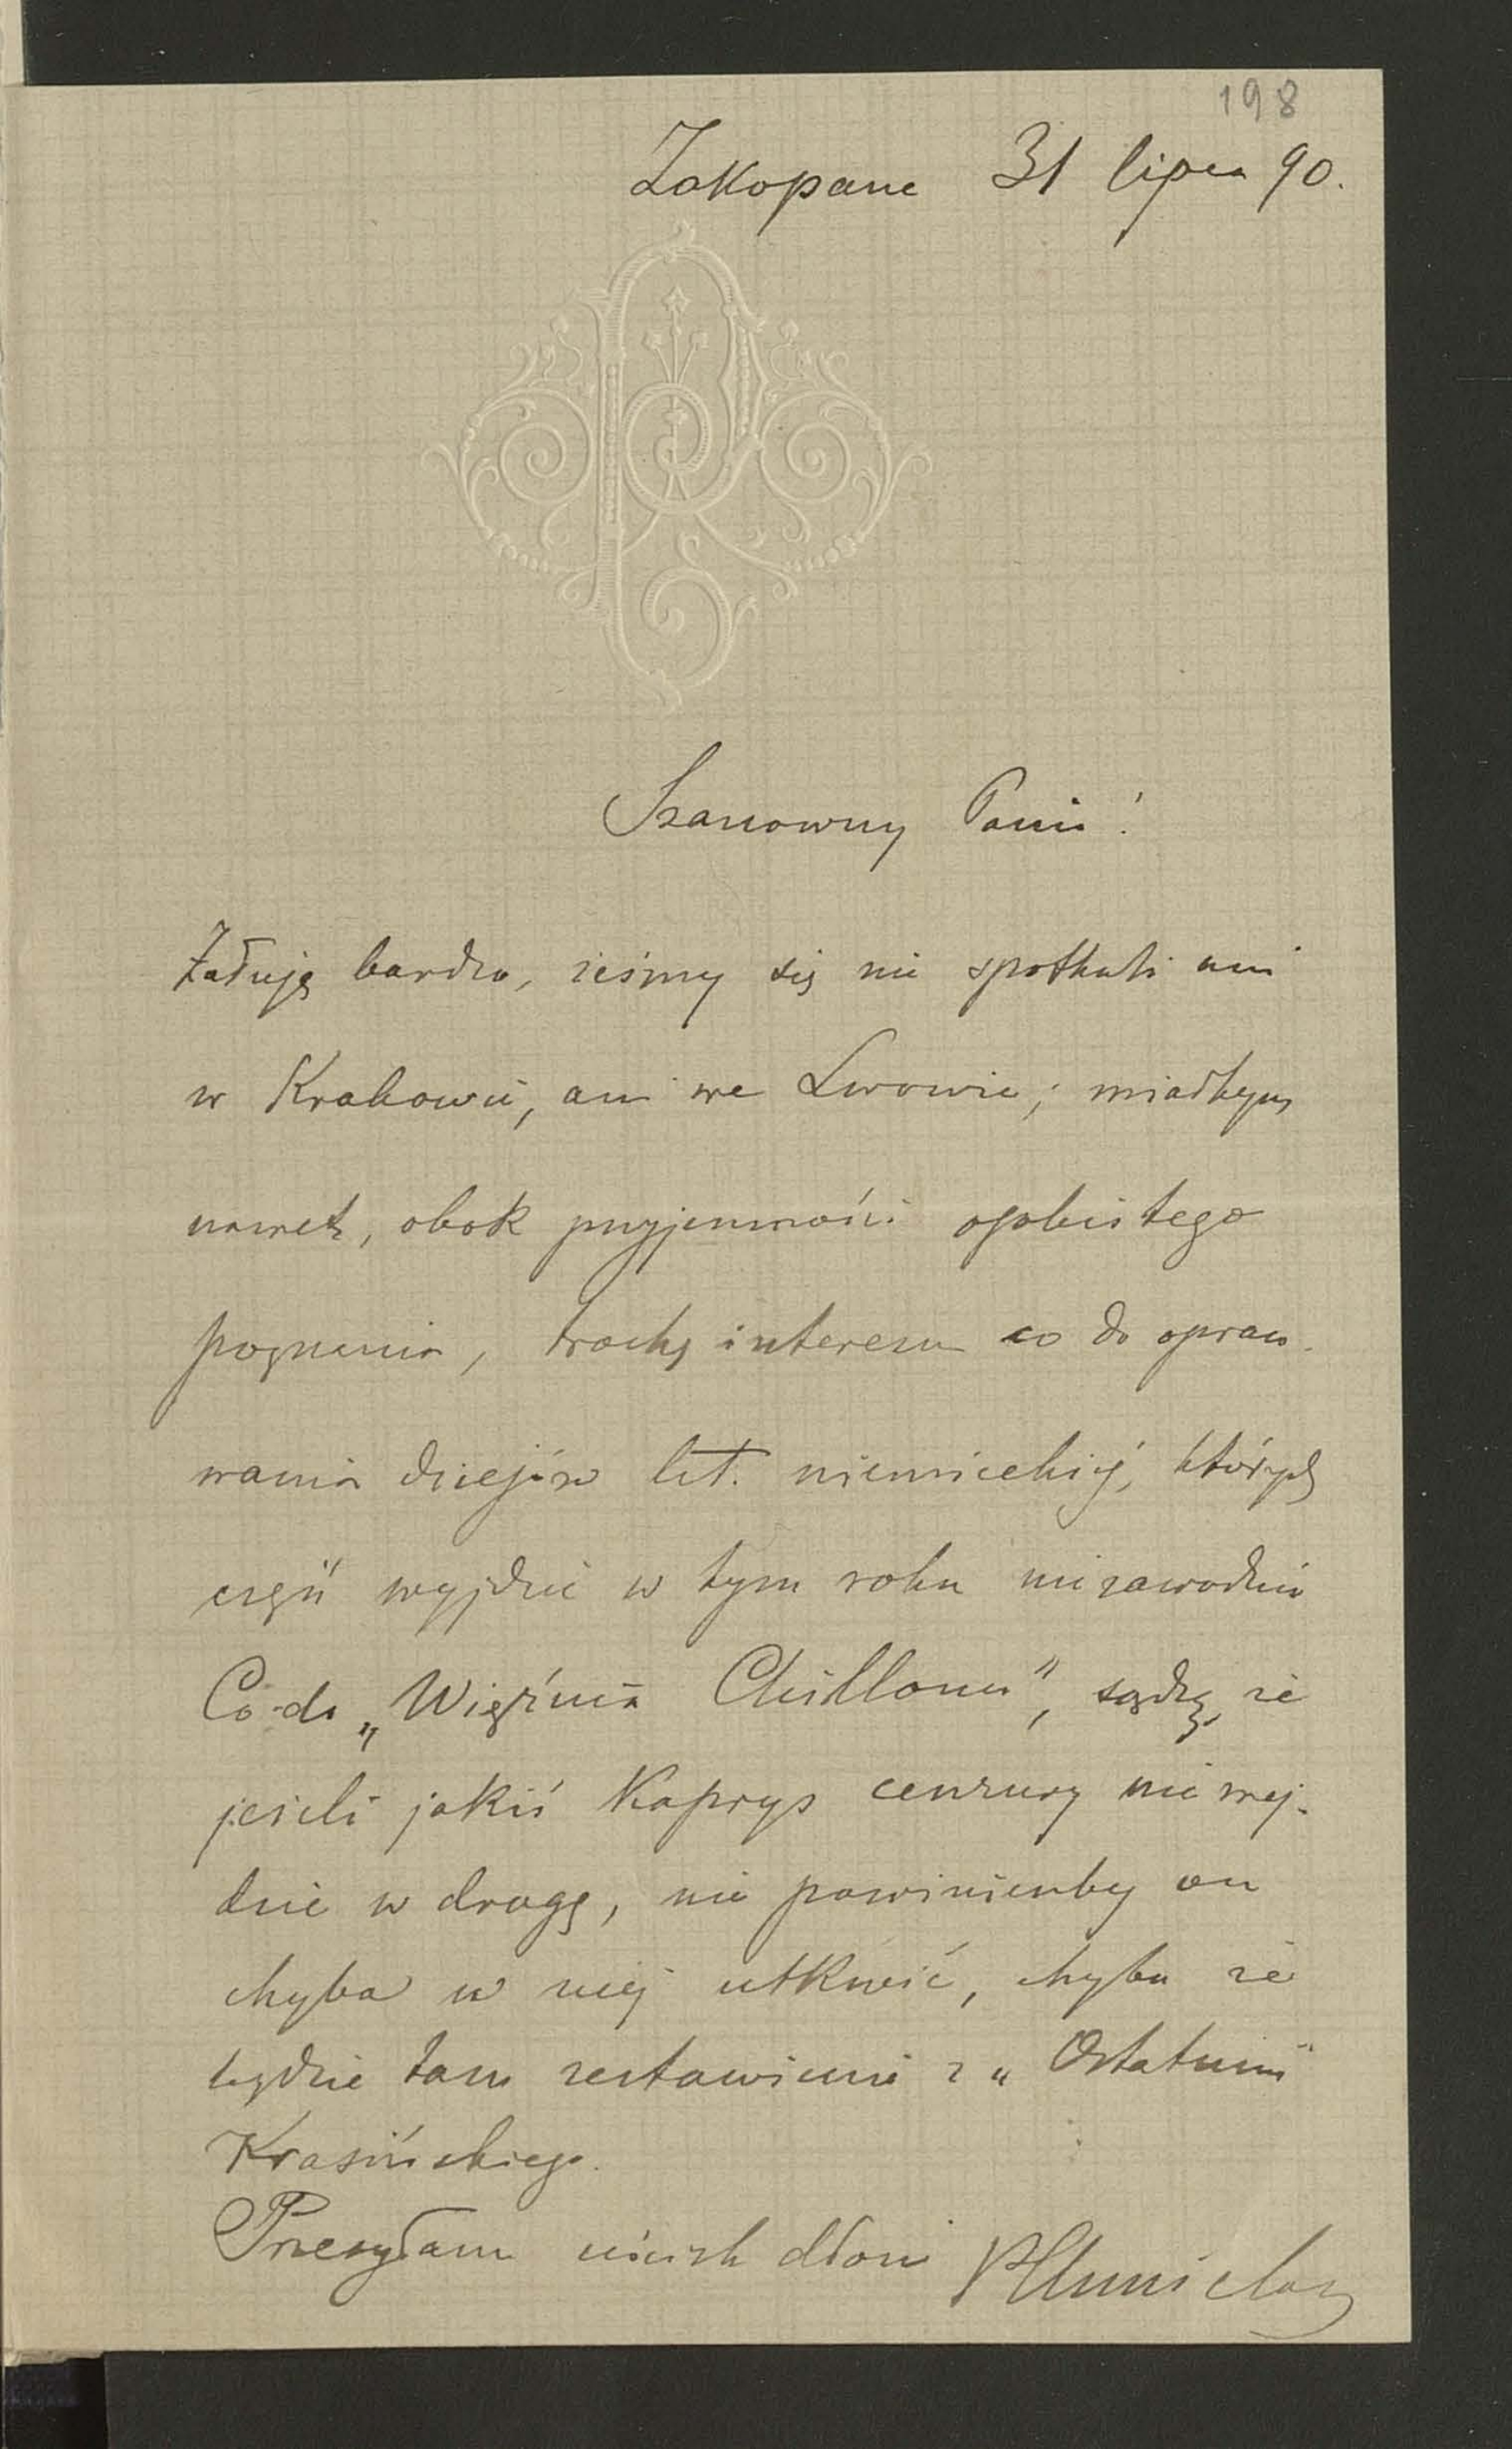 198
Zakopane 31 lipca 90.
Szanowny Panie!
Żałuję bardzo, żeśmy się nie spotkali ani
w Krakowie, ani we Lwowie; miałbym
nawet, obok przyjemności osobistego
poznania, trochę interesu co do opraco-
wania dziejów lit. niemieckiéj, których
część wyjdzie w tym roku niezawodnie
Co do „Więźnia Chillonu", sądzę, że
jeżeli jakiś kaprys cenzury nie wej-
dzie w drogę, nie powinienby on
chyba w niéj utkwić, chyba że
będzie tam zestawienie z „Ostatnim"
Krasińskiego.
Przesyłam uścisk dłoni PChmielowski